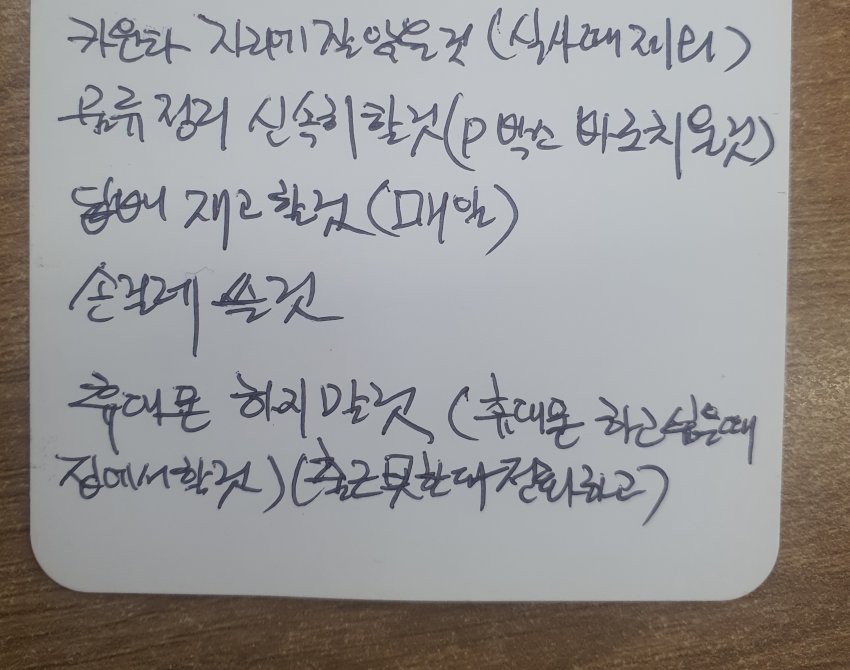 카운타 자리에 잘 앉을것 (식사때 제외)
물류정리 신속히 할것 (P 박스 바로 치울것)
담배 재고 할것 (매일)
손걸레 쓸것
휴대폰 하지 말것 (휴대폰 하고싶은때
집에서 할것) (출근 못한다 전화하고)